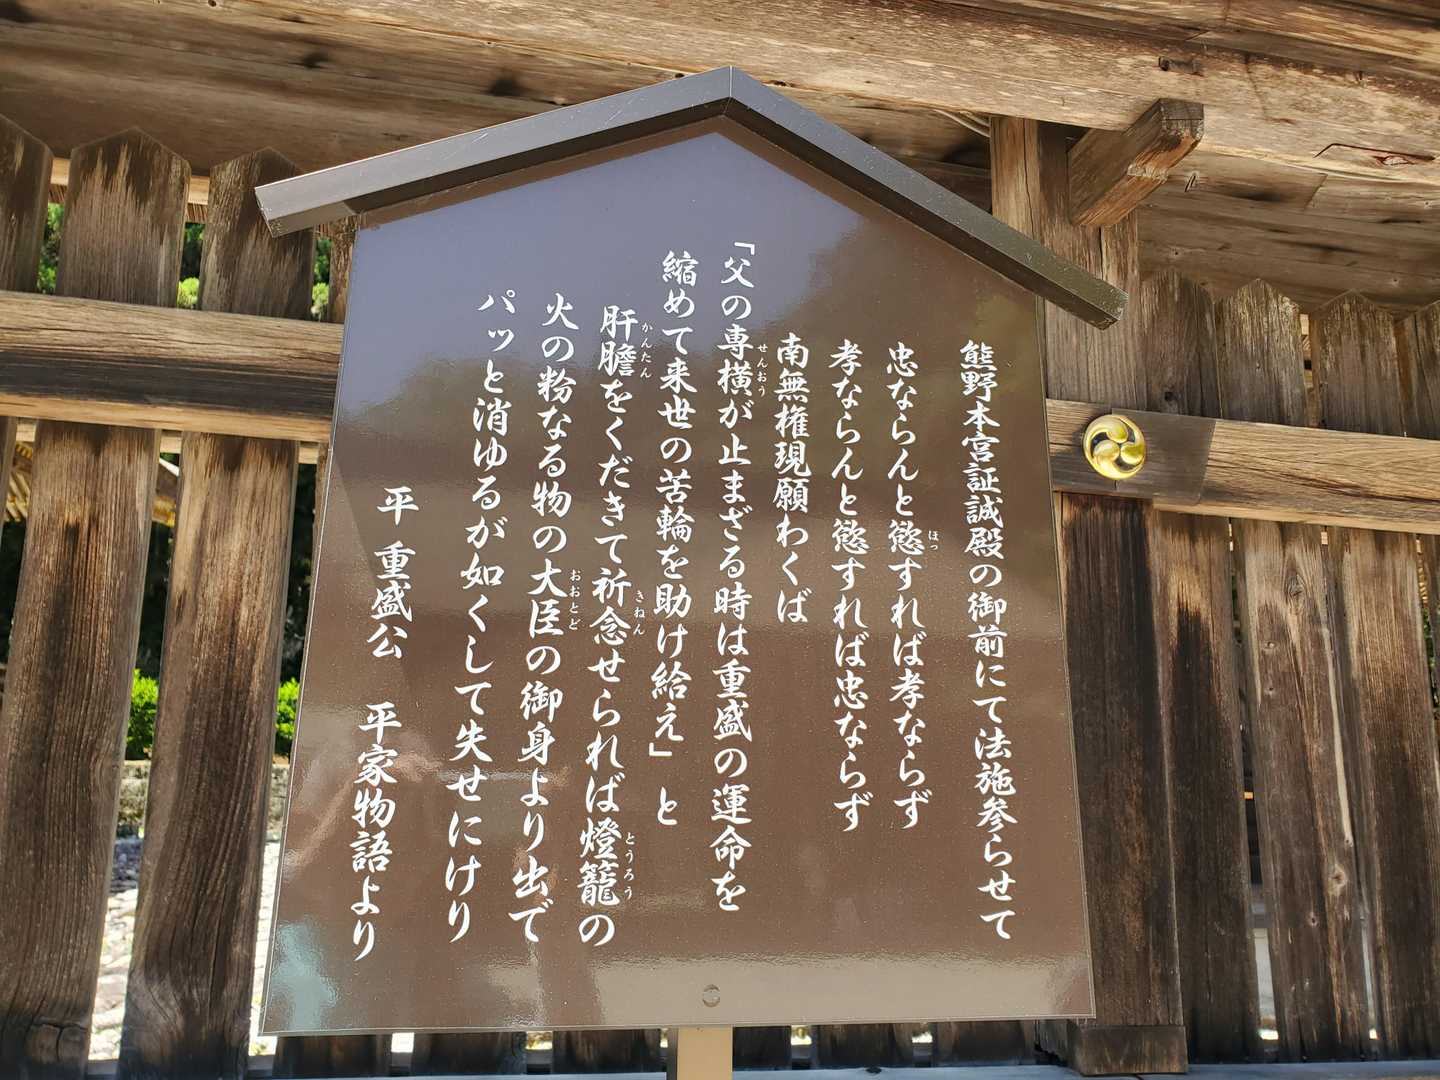 熊野本宮証誠殿の御前にて法施参らせて
忠ならんと慾すれば孝ならず
ほっ
孝ならんと慾すれば忠ならず
南無権現願わくば
「父の専横が止まざる時は重盛の運命を
せんおう
縮めて来世の苦輪を助け給え」と
肝膽をくだきて祈念せられば燈籠の
かんたん
きねん
とうろう
火の粉なる物の大臣の御身より出で
おおとど
パッと消ゆるが如くして失せにけり
平 重盛公 平家物語より